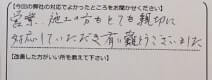 【今回の弊社の対応でよかったところをお聞かせください】
営業、施工の方もとても親切に
対応していただき有難うございました
【改善した方がいい所を教えて下さい】